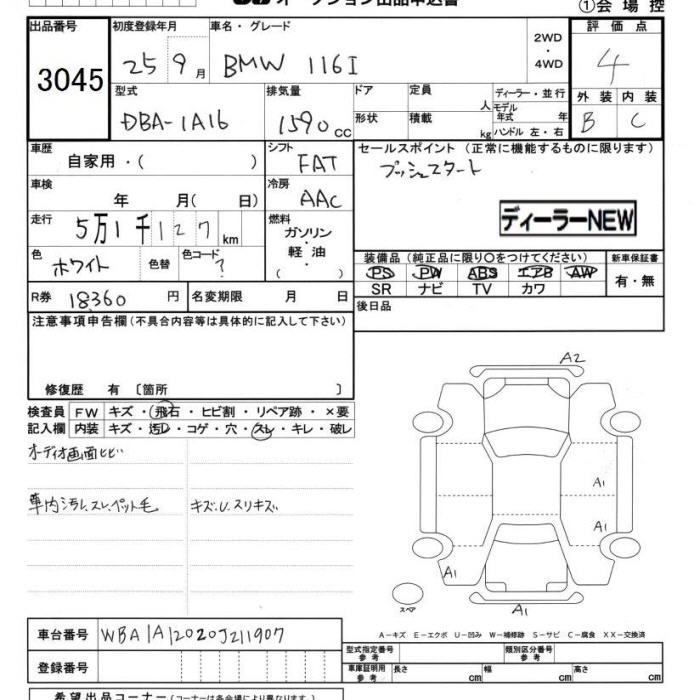 オークション出品申込書
①会場控
出品番号 初度登録年月 車名・グレード 2WD ・ 4WD 評価点
3045 25 9月 BMW 116I 4
型式 排気量 ドア 定員 人 ディーラー・並行 外装 内装
DBA-1A16 1590 cc 形状 積載 kg モデル年式 年 ハンドル 左・右 B C
車歴 自家用・( ) シフト FAT セールスポイント (正常に機能するものに限ります)
プッシュスタート
車検 年 月( 日) 冷房 AAC
ディーラーNEW
走行 5万1千127km 燃料 ガソリン・軽油・( )
色 ホワイト 色替 色コード ?
装備品(純正品に限り○をつけてください) 新車保証書
PS PW ABS エアB AW 有・無
SR ナビ TV カワ
R券 18360円 名変期限 月 日 後日品
注意事項申告欄(不具合内容等は具体的に記入して下さい)
修復歴 有 〔箇所 〕
検査員 FW キズ・飛石・ヒビ割・リペア跡・×要
記入欄 内装 キズ・汚レ・コゲ・穴・スレ・キレ・破レ
オーディオ画面ヒビ
車内汚レ、スレ、ペット毛 キズ、U、スリキズ
A2
A1
A1
A1
A1
スペア
A-キズ E-エクボ U-凹み W-補修跡 S-サビ C-腐食 XX-交換済
車台番号 WBA1A12020J211907
型式指定番号 参考 類別区分番号 参考
登録番号 車庫証明用 参考 長さ cm 幅 cm 高さ cm
希望出品コーナー(コーナー名は各会場により異なります)